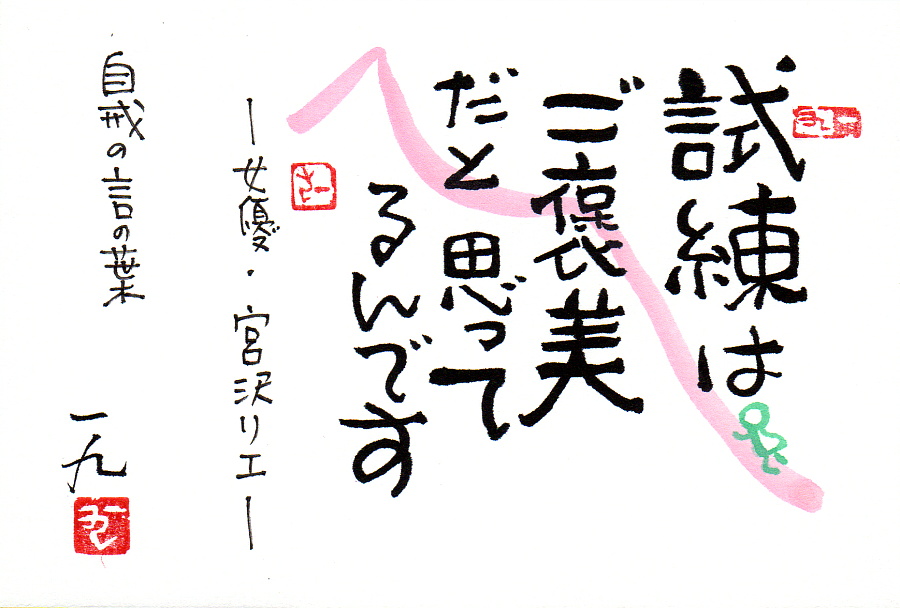 試練は
ご褒美
だと思って
るんです
―女優・宮沢リエ―
自戒の言の葉
一九